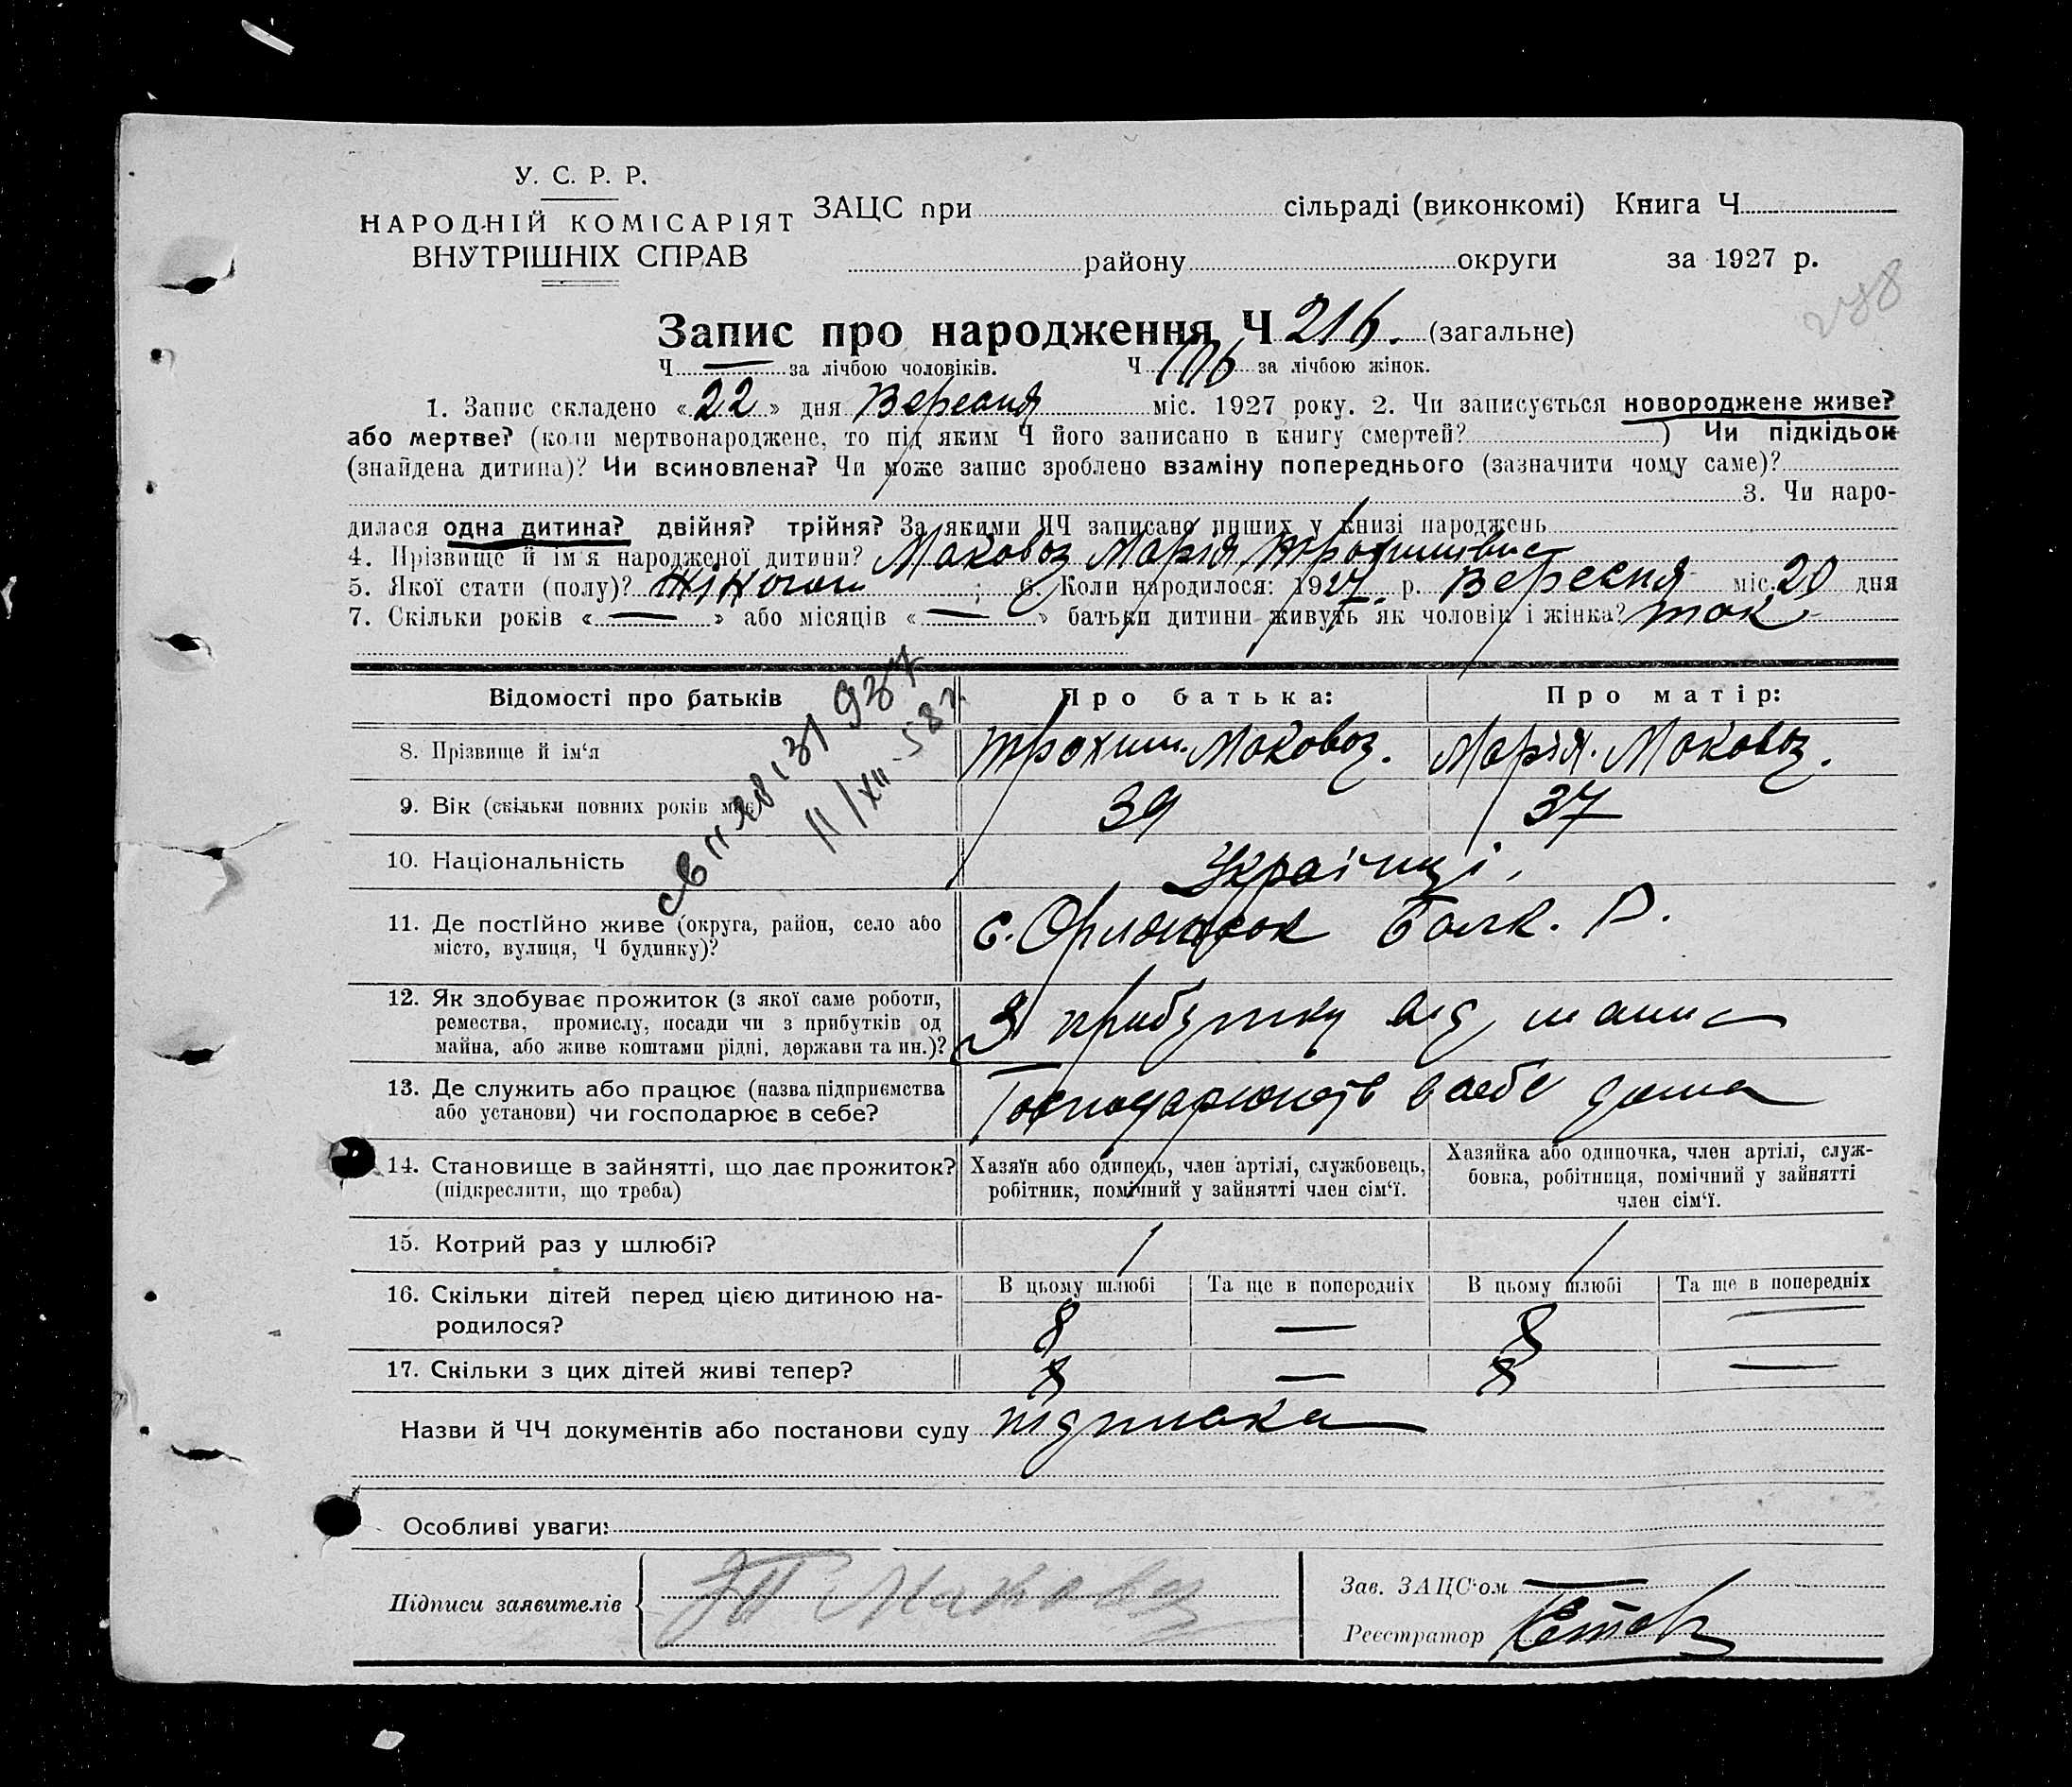 У. С. Р. Р.
НАРОДНІЙ КОМІСАРІЯТ
ВНУТРІШНІХ СПРАВ
ЗАЦС при сільраді (виконкомі) Книга Ч
району округи за 1927 р.
Запис про народження Ч 216. (загальне)
Ч — за лічбою чоловіків. Ч 106 за лічбою жінок.
1. Запис складено «22» дня Вересня міс. 1927 року. 2. Чи записується новороджене живе?
або мертве? (коли мертвонароджене, то під яким Ч його записано в книгу смертей? ) Чи підкідьок
(знайдена дитина)? Чи всиновлена? Чи може запис зроблено взаміну попереднього (зазначити чому саме)?
3. Чи наро-
дилася одна дитина? двійня? трійня? За якими ЧЧ записано инших у книзі народжень
4. Прізвище й ім'я народженої дитини? Маковоз Марія Трохимівна
5. Якої стати (полу)? Жіночои ; 6. Коли народилося: 1927. р. Вересня міс. 20 дня
7. Скільки років «—» або місяців «—» батьки дитини живуть як чоловік і жінка? так
Відомості про батьків Про батька: Про матір:
8. Прізвище й ім'я Трохим. Маковоз. Марія. Маковоз.
9. Вік (скільки повних років має) 39 37
10. Національність Українці
11. Де постІйно живе (округа, район, село або
місто, вулиця, Ч будинку)?
с. Р.
12. Як здобуває прожиток (з якої саме роботи,
ремества, промислу, посади чи з прибутків од
майна, або живе коштами рідні, держави та ин.)?
З прибутку від
13. Де служить або працює (назва підприємства
або установи) чи господарює в себе?
Господарюють в себе дома
14. Становище в зайнятті, що дає прожиток?
(підкреслити, що треба)
Хазяїн або одинець, член артілі, службовець,
робітник, помічний у зайнятті член сім'ї.
Хазяйка або одиночка, член артілі, служ-
бовка, робітниця, помічний у зайнятті
член сім'ї.
15. Котрий раз у шлюбі? 1 1
16. Скільки дітей перед цією дитиною на-
родилося?
В цьому шлюбі Та ще в попередніх В цьому шлюбі Та ще в попередніх
8 — 8 —
17. Скільки з цих дітей живі тепер? 8 — 8 —
Назви й ЧЧ документів або постанови суду підписка
Особливі уваги:
Підписи заявителів Маковоз
Зав. ЗАЦС'ом
Реєстратор